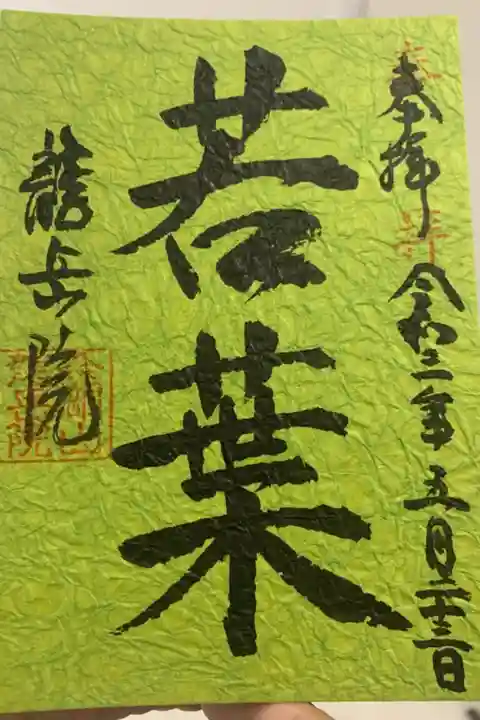 奉拝
令和二年五月二十三日
若葉
龍岳院